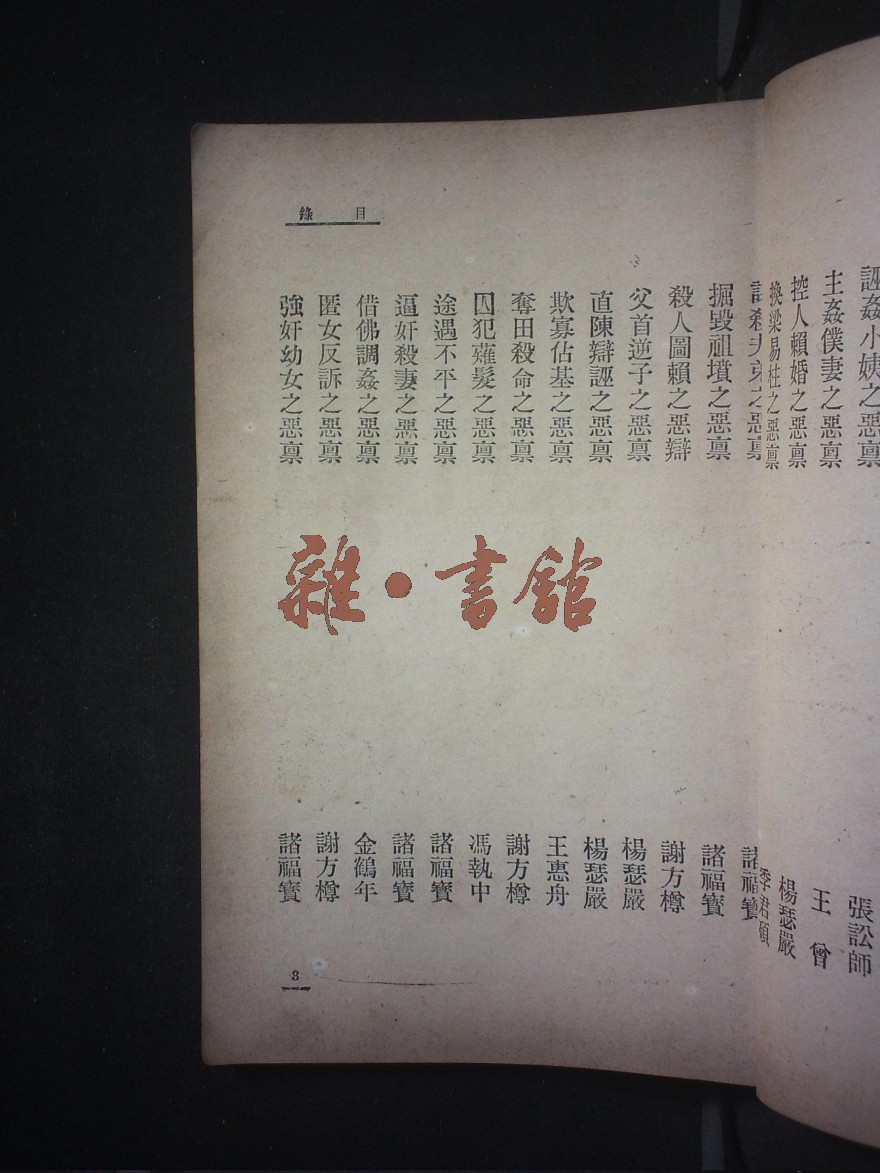 目錄
誣姦小姨之惡稟 張訟師
主姦僕妻之惡稟 王曾
控人賴婚之惡稟 楊瑟嚴
換梁易柱之惡稟 季君碩
殺夫弟之惡稟 諸福寶
掘毀祖墳之惡稟 諸福寶
殺人圖賴之惡辯 謝方樽
父首逆子之惡稟 楊瑟嚴
直陳辯誣之惡稟 楊瑟嚴
欺寡佔基之惡稟 王惠舟
奪田殺命之惡稟 謝方樽
囚犯薙髮之惡稟 馮執中
途遇不平之惡稟 諸福寶
逼奸殺妻之惡稟 諸福寶
借佛調姦之惡稟 金鶴年
匿女反訴之惡稟 謝方樽
強奸幼女之惡稟 諸福寶
3
雜·書館